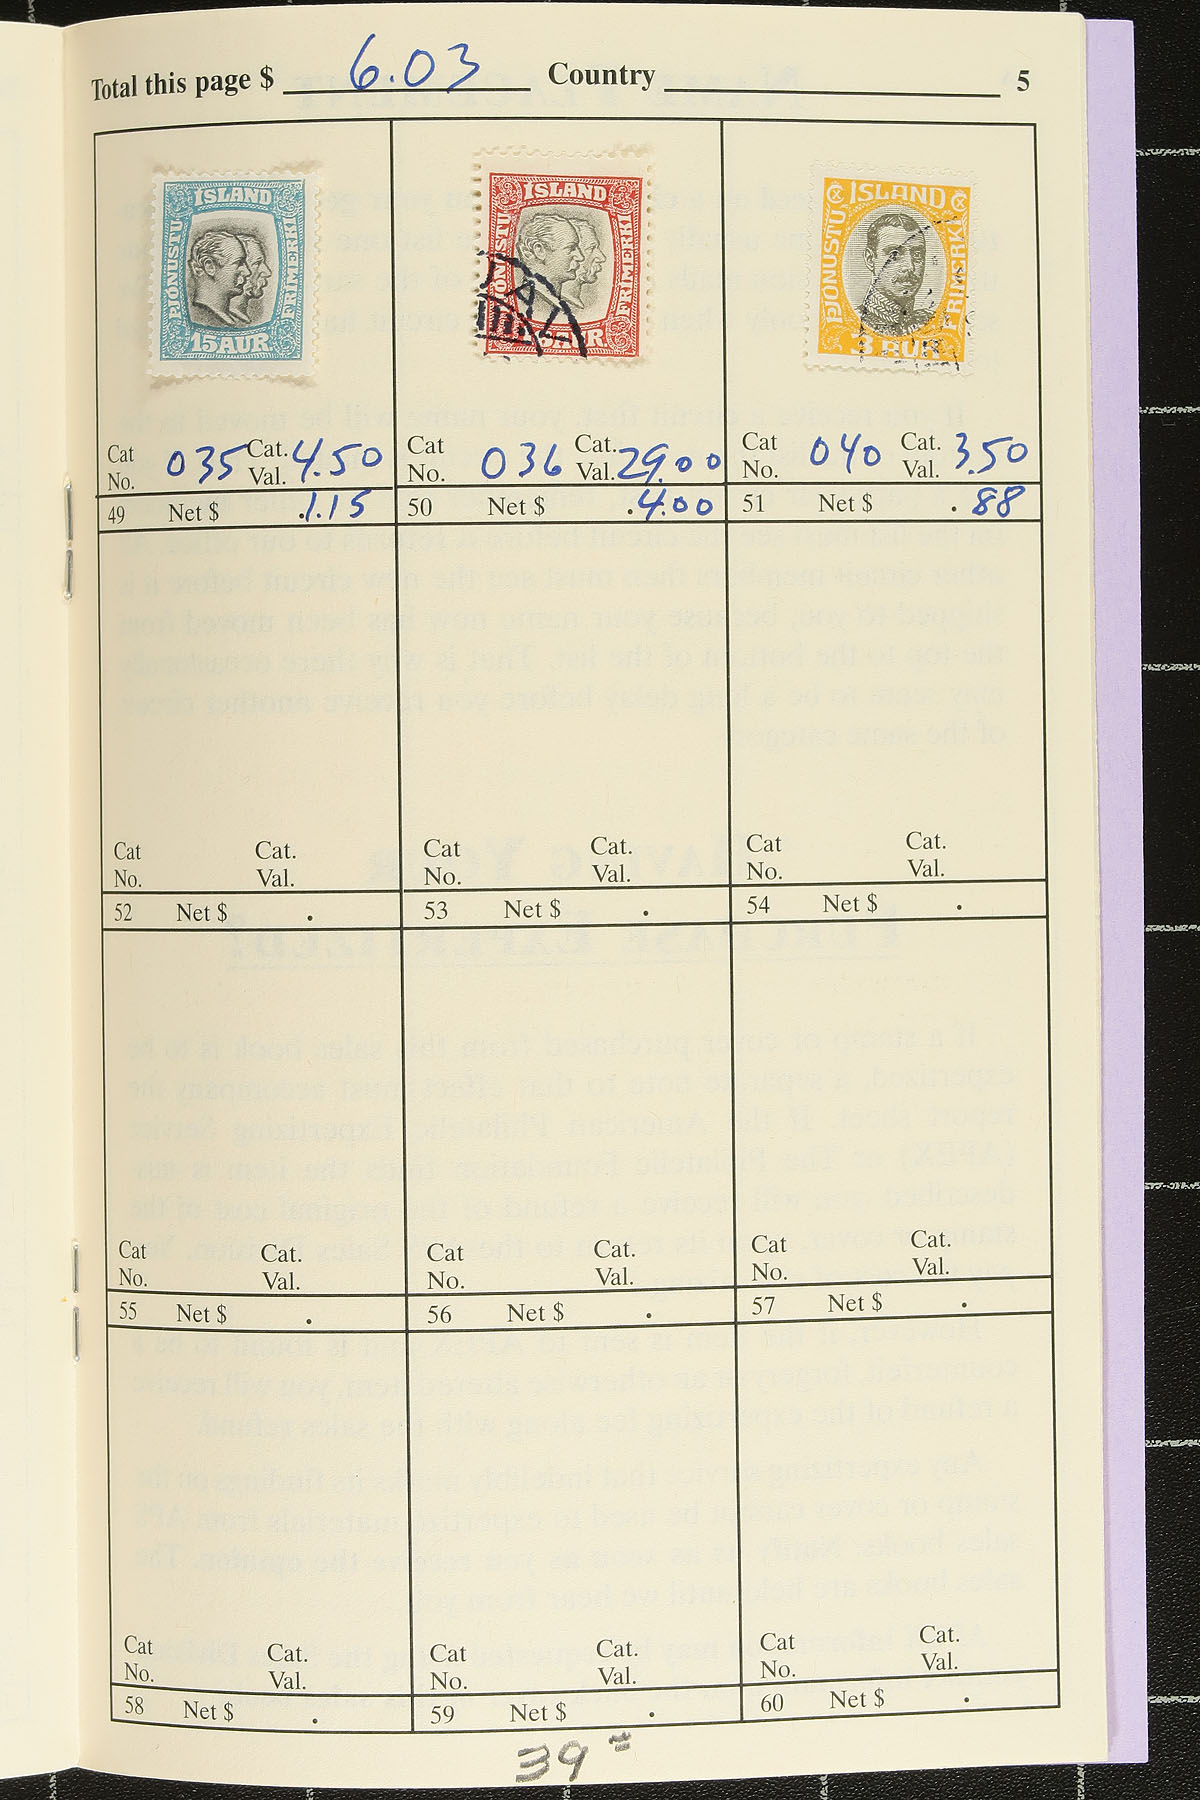 Total this page $ 6.03 Country 5
ÍSLAND ÍSLAND ÍSLAND
ÞJÓNUSTU FRIMERKI ÞJÓNUSTU FRIMERKI ÞJÓNUSTU FRIMERKI
15 AUR AUR 3 AUR
Cat No. 035 Cat. Val. 4.50 Cat No. 036 Cat. Val. 29.00 Cat No. 040 Cat. Val. 3.50
49 Net $ 1.15 50 Net $ .4.00 51 Net $ .88
Cat No. Cat. Val. Cat No. Cat. Val. Cat No. Cat. Val.
52 Net $ . 53 Net $ . 54 Net $ .
Cat No. Cat. Val. Cat No. Cat. Val. Cat No. Cat. Val.
55 Net $ . 56 Net $ . 57 Net $ .
Cat No. Cat. Val. Cat No. Cat. Val. Cat No. Cat. Val.
58 Net $ . 59 Net $ . 60 Net $ .
39 =